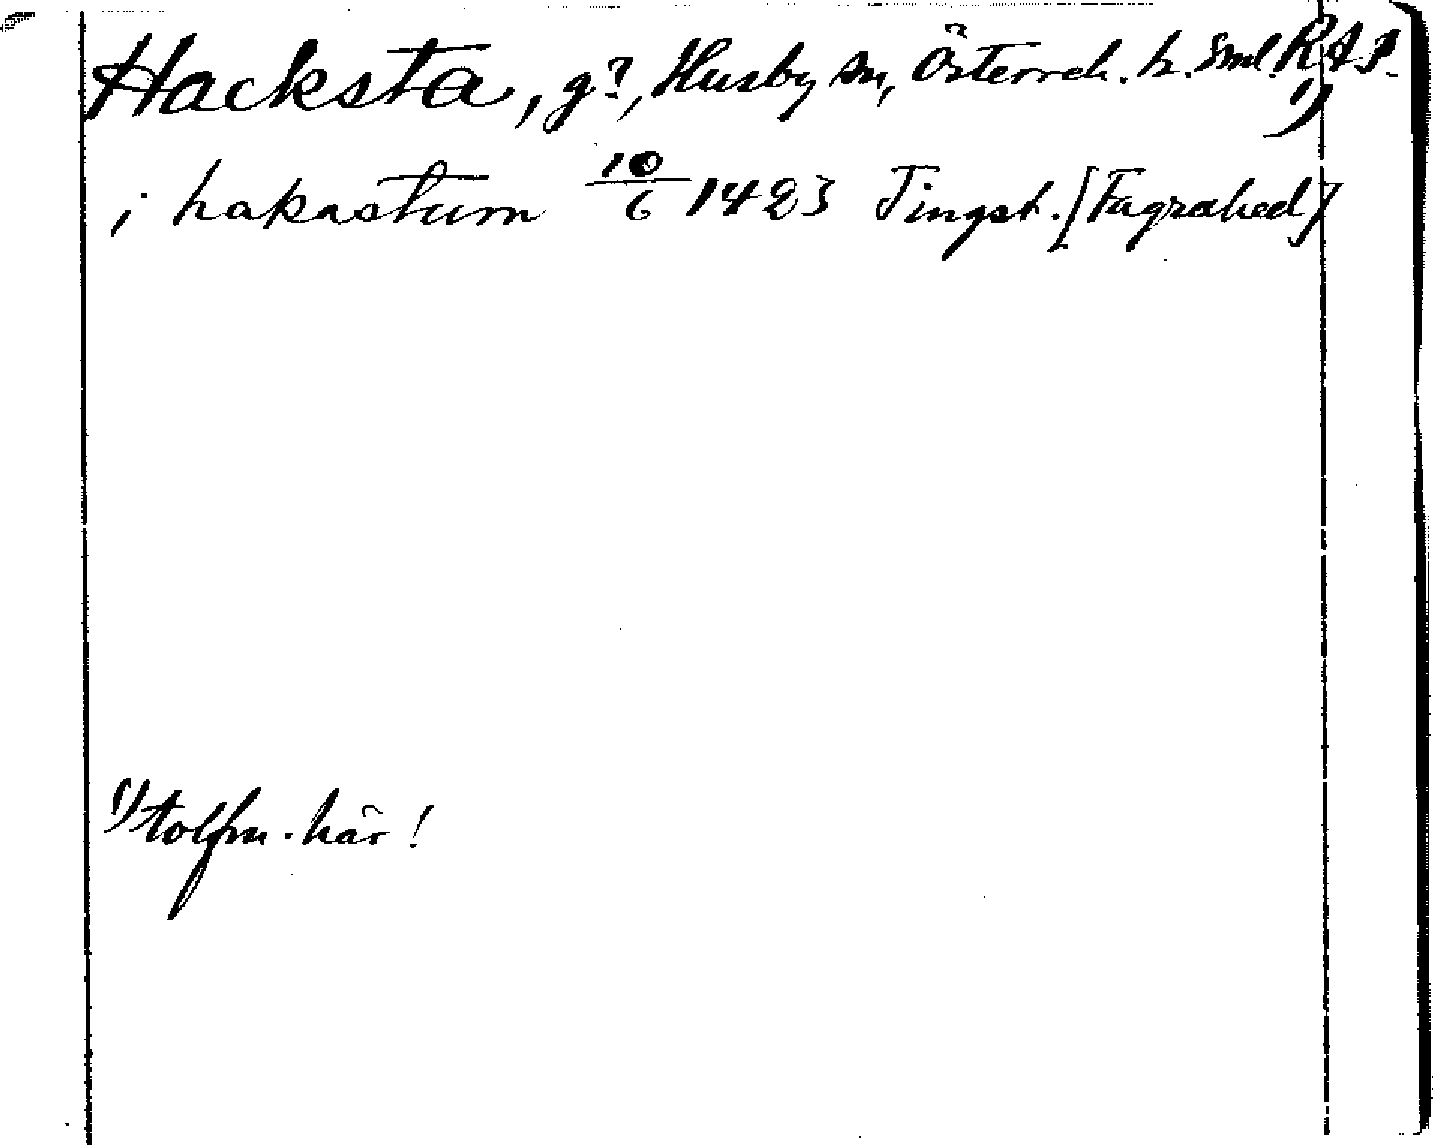 Hacksta, g?, Husby sn, Österrek. h. Sml. RAP.
1)
i hakastum 10/6 1423 Tingst. [Fagrahed]
1) tolfm. här!